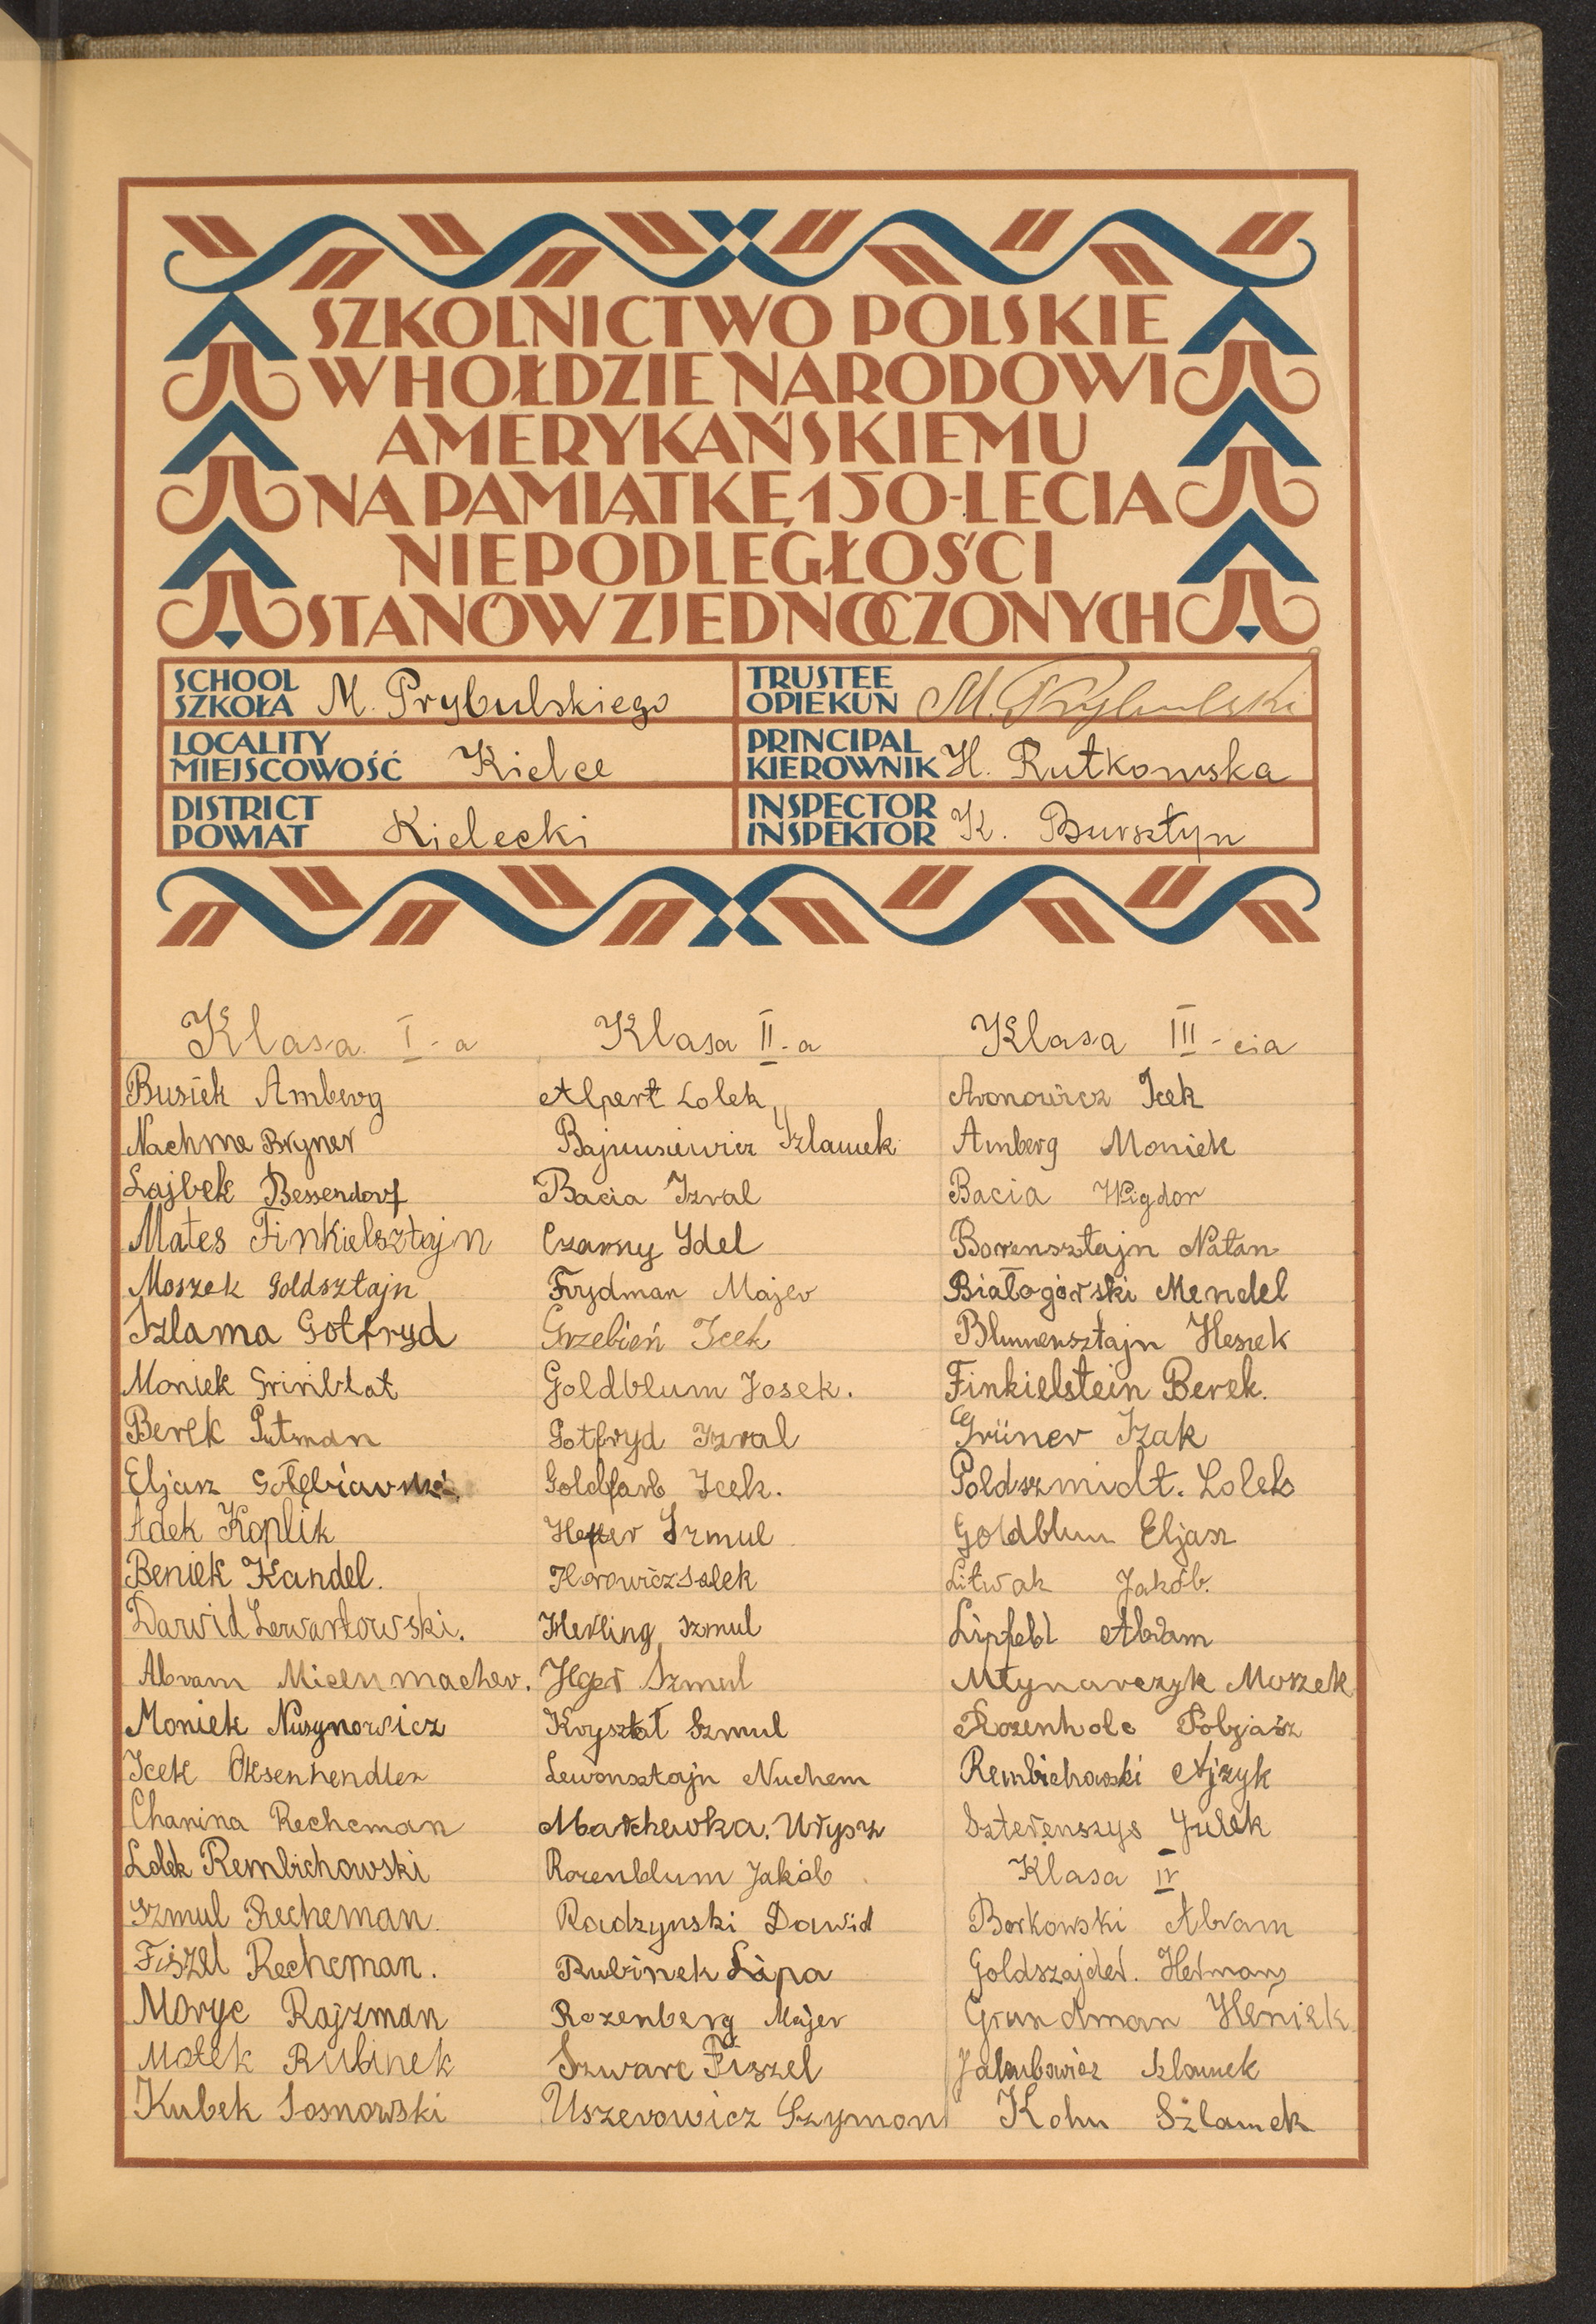 SZKOLNICTWO POLSKIE
W HOŁDZIE NARODOWI
AMERYKAŃSKIEMU
NA PAMIĄTKĘ 150-LECIA
NIEPODLEGŁOŚCI
STANÓW ZJEDNOCZONYCH
SCHOOL
SZKOŁA M. Prybulskiego
TRUSTEE
OPIEKUN M. Prybulski
LOCALITY
MIEJSCOWOŚĆ Kielce
PRINCIPAL
KIEROWNIK H. Rutkowska
DISTRICT
POWIAT Kielecki
INSPECTOR
INSPEKTOR K. Bursztyn
Klasa I-a
Busiek Amberg
Nachme Bryner
Lajbek Bessendorf
Mates Finkielsztajn
Moszek Goldsztajn
Szlama Gotfryd
Moniek Grinblat
Berek Gutman
Eljasz
Adek Koplik
Beniek Kandel.
Dawid Lewartowski.
Abram Mielnmacher.
Moniek Nusynowicz
Icek Oksenhendler
Chanina Rechcman
Lolek Rembichowski
Szmul Recheman
Fiszel Rechcman.
Moryc Rajzman
Motek Rubinek
Kubek Sosnowski
Klasa II-a
Alpert Lolek
Bajnusiewicz Szlamek
Bacia Izral
Czarny Ydel
Frydman Majer
Grzebień Icek
Goldblum Josek.
Gotfryd Izral
Goldfarb Icek.
Szmul
Horowicz Salek
Herling Szmul
Szmul
Kryształ Szmul
Lewensztajn Nuchem
Marchewka. Urysz
Rozenblum Jakób
Radzynski Dawid
Rubinek Lipa
Rozenberg Majer
Szwarc Fiszel
Uszerowicz Szymon
Klasa III-cia
Aronowicz Icek
Amberg Moniek
Bacia Wigdor
Borensztajn Natan
Białogórski Mendel
Blumensztajn Heszek
Finkielstein Berek.
Grüner Izak
Goldszmidt. Lolek
Goldblum Eljasz
Litwak Jakób.
Lipfeld Abram
Młynarczyk Moszek
Rozenholc Tobjasz
Rembichowski Ajzyk
Szterenszys Julek
Klasa IV
Borkowski Abram
Goldszajder. Herman
Grundman Heniek
Jakubowicz Szlamek
Kohn Szlamek